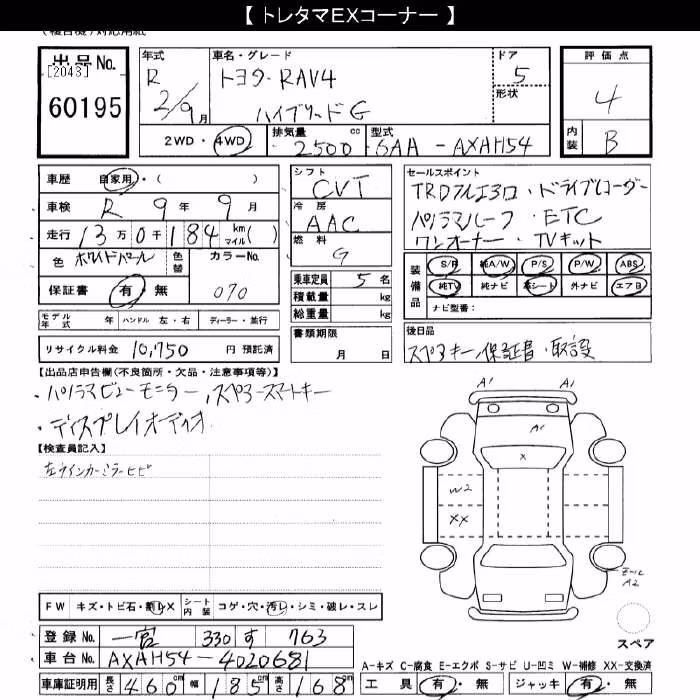 【 トレタマEXコーナー 】
出品No.
[2043]
60195
年式
R
2/9月
車名・グレード
トヨタ・RAV4
ハイブリッドG
ドア
5
形状
評価点
4
内装
B
2WD・4WD
排気量
2500
cc
型式
6AA - AXAH54
車歴
自家用・( )
車検
R 9年 9月
走行
13万0千184
km
マイル
( )
色
ホワイトパール
色替
カラーNo.
070
保証書
有・無
シフト
CVT
冷房
AAC
燃料
G
乗車定員 5名
積載量 kg
総重量 kg
書類期限
月 日
セールスポイント
TRDフルエアロ・ドライブレコーダー
パノラマルーフ・ETC
ワンオーナー・TVキット
装備品
S/R 純A/W P/S P/W ABS
純TV 純ナビ 革シート 外ナビ エアB
ナビ型番:
モデル年式 年
ハンドル 左・右
ディーラー・並行
リサイクル料金 10,750 円 預託済
後日品
スペアキー・保証書・取説
【出品店申告欄(不良箇所・欠品・注意事項等)】
・パノラマビューモニター,スペアースマートキー
・ディスプレイオーディオ
【検査員記入】
左ウインカーミラーヒビ
A1 A1
A1
X
W2
XX
A2
スペア
FW キズ・トビ石・割レX
シート内装
コゲ・穴・汚レ・シミ・破レ・スレ
登録No. 一宮 330 す 763
車台No. AXAH54-4020681
車庫証明用 長さ 460cm 幅 185cm 高さ 168cm
A-キズ C-腐食 E-エクボ S-サビ U-凹ミ W-補修 XX-交換済
工具 有・無 ジャッキ 有・無